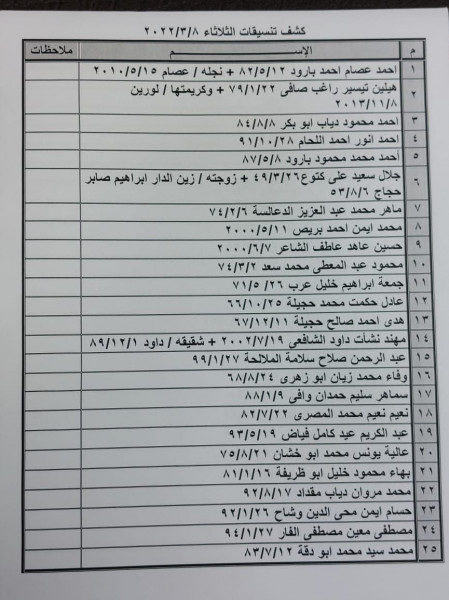 كشف تنسيقات الثلاثاء ٢٠٢٢/٣/٨
م الإســـــم ملاحظات
١ احمد عصام احمد بارود ٨٢/٥/١٢ + نجله / عصام ٢٠١٠/٥/١٥
٢ هيلين تيسير راغب صافى ٧٩/١/٢٢ + وكريمتها / لورين
٢٠١٣/١١/٨
٣ احمد محمود دياب ابو بكر ٨٤/٨/٨
٤ احمد انور احمد اللحام ٩١/١٠/٢٨
٥ احمد محمد محمود بارود ٨٧/٥/٨
٦ جلال سعيد على كتوع ٤٩/٣/٢٦ + زوجته / زين الدار ابراهيم صابر
حجاج ٥٣/٨/٦
٧ ماهر محمد عبد العزيز الدعالسة ٧٤/٢/٦
٨ محمد ايمن احمد بريص ٢٠٠٠/٥/١١
٩ حسين عاهد عاطف الشاعر ٢٠٠٠/٦/٧
١٠ محمود عبد المعطى محمد سعد ٧٤/٣/٢
١١ جمعة ابراهيم خليل عرب ٧١/٥/٢٦
١٢ عادل حكمت محمد حجيلة ٦٦/١٠/٢٥
١٣ هدى احمد صالح حجيلة ٦٧/١٢/١١
١٤ مهند نشأت داود الشافعى ٢٠٠٢/٧/١٩ + شقيقه / داود ٨٩/١٢/١
١٥ عبد الرحمن صلاح سلامة الملالحة ٩٩/١/٢٧
١٦ وفاء محمد زيان ابو زهرى ٦٨/٨/٢٤
١٧ سماهر سليم حمدان وافى ٨٨/١/٩
١٨ نعيم نعيم محمد المصرى ٨٢/٧/٢٢
١٩ عبد الكريم عيد كامل فياض ٩٣/٥/١٩
٢٠ عالية يونس محمد ابو خشان ٧٥/٨/٢١
٢١ بهاء محمود خليل ابو ظريفة ٨١/١/١٦
٢٢ محمد مروان دياب مقداد ٩٢/٨/١٧
٢٣ حسام ايمن محى الدين وشاح ٩٢/١/٢٦
٢٤ مصطفى معين مصطفى الفار ٩٤/١/٢٧
٢٥ محمد سيد محمد ابو دقة ٨٣/٧/١٢